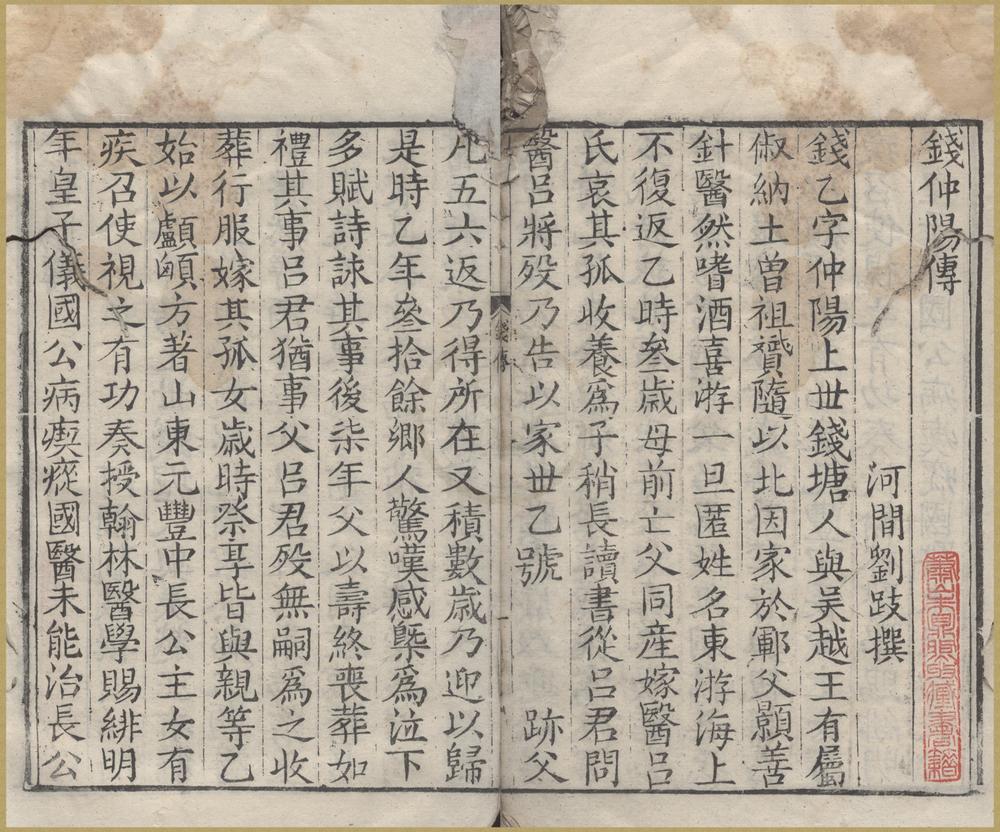 錢仲陽傳
河間劉跂撰
錢乙字仲陽上世錢塘人與吴越王有屬
俶納土曾祖贇隨以北因家於鄆父顥善
針醫然嗜酒喜游一旦匿姓名東游海上
不復返乙時叁歳母前亡父同産嫁醫吕
氏哀其孤收養爲子稍長讀書從吕君問
醫吕將殁乃告以家世乙號 跡父
凡五六返乃得所在又積數歳乃迎以歸
是時乙年叁拾餘鄉人驚嘆感槩爲泣下
多賦詩詠其事後柒年父以壽終喪葬如
禮其事吕君猶事父吕君殁無嗣爲之收
葬行服嫁其孤女歳時祭享皆與親等乙
始以顱顖方著山東元豐中長公主女有
疾召使視之有功奏授翰林醫學賜緋明
年皇子儀國公病瘈瘲國醫未能治長公